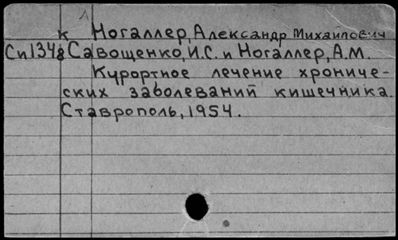 к Ногаллер, Александр Михайлович
Си1348 Савощенко, И.С. и Ногаллер, А.М.
Курортное лечение хрониче-
ских заболеваний кишечника.
Ставрополь, 1954.